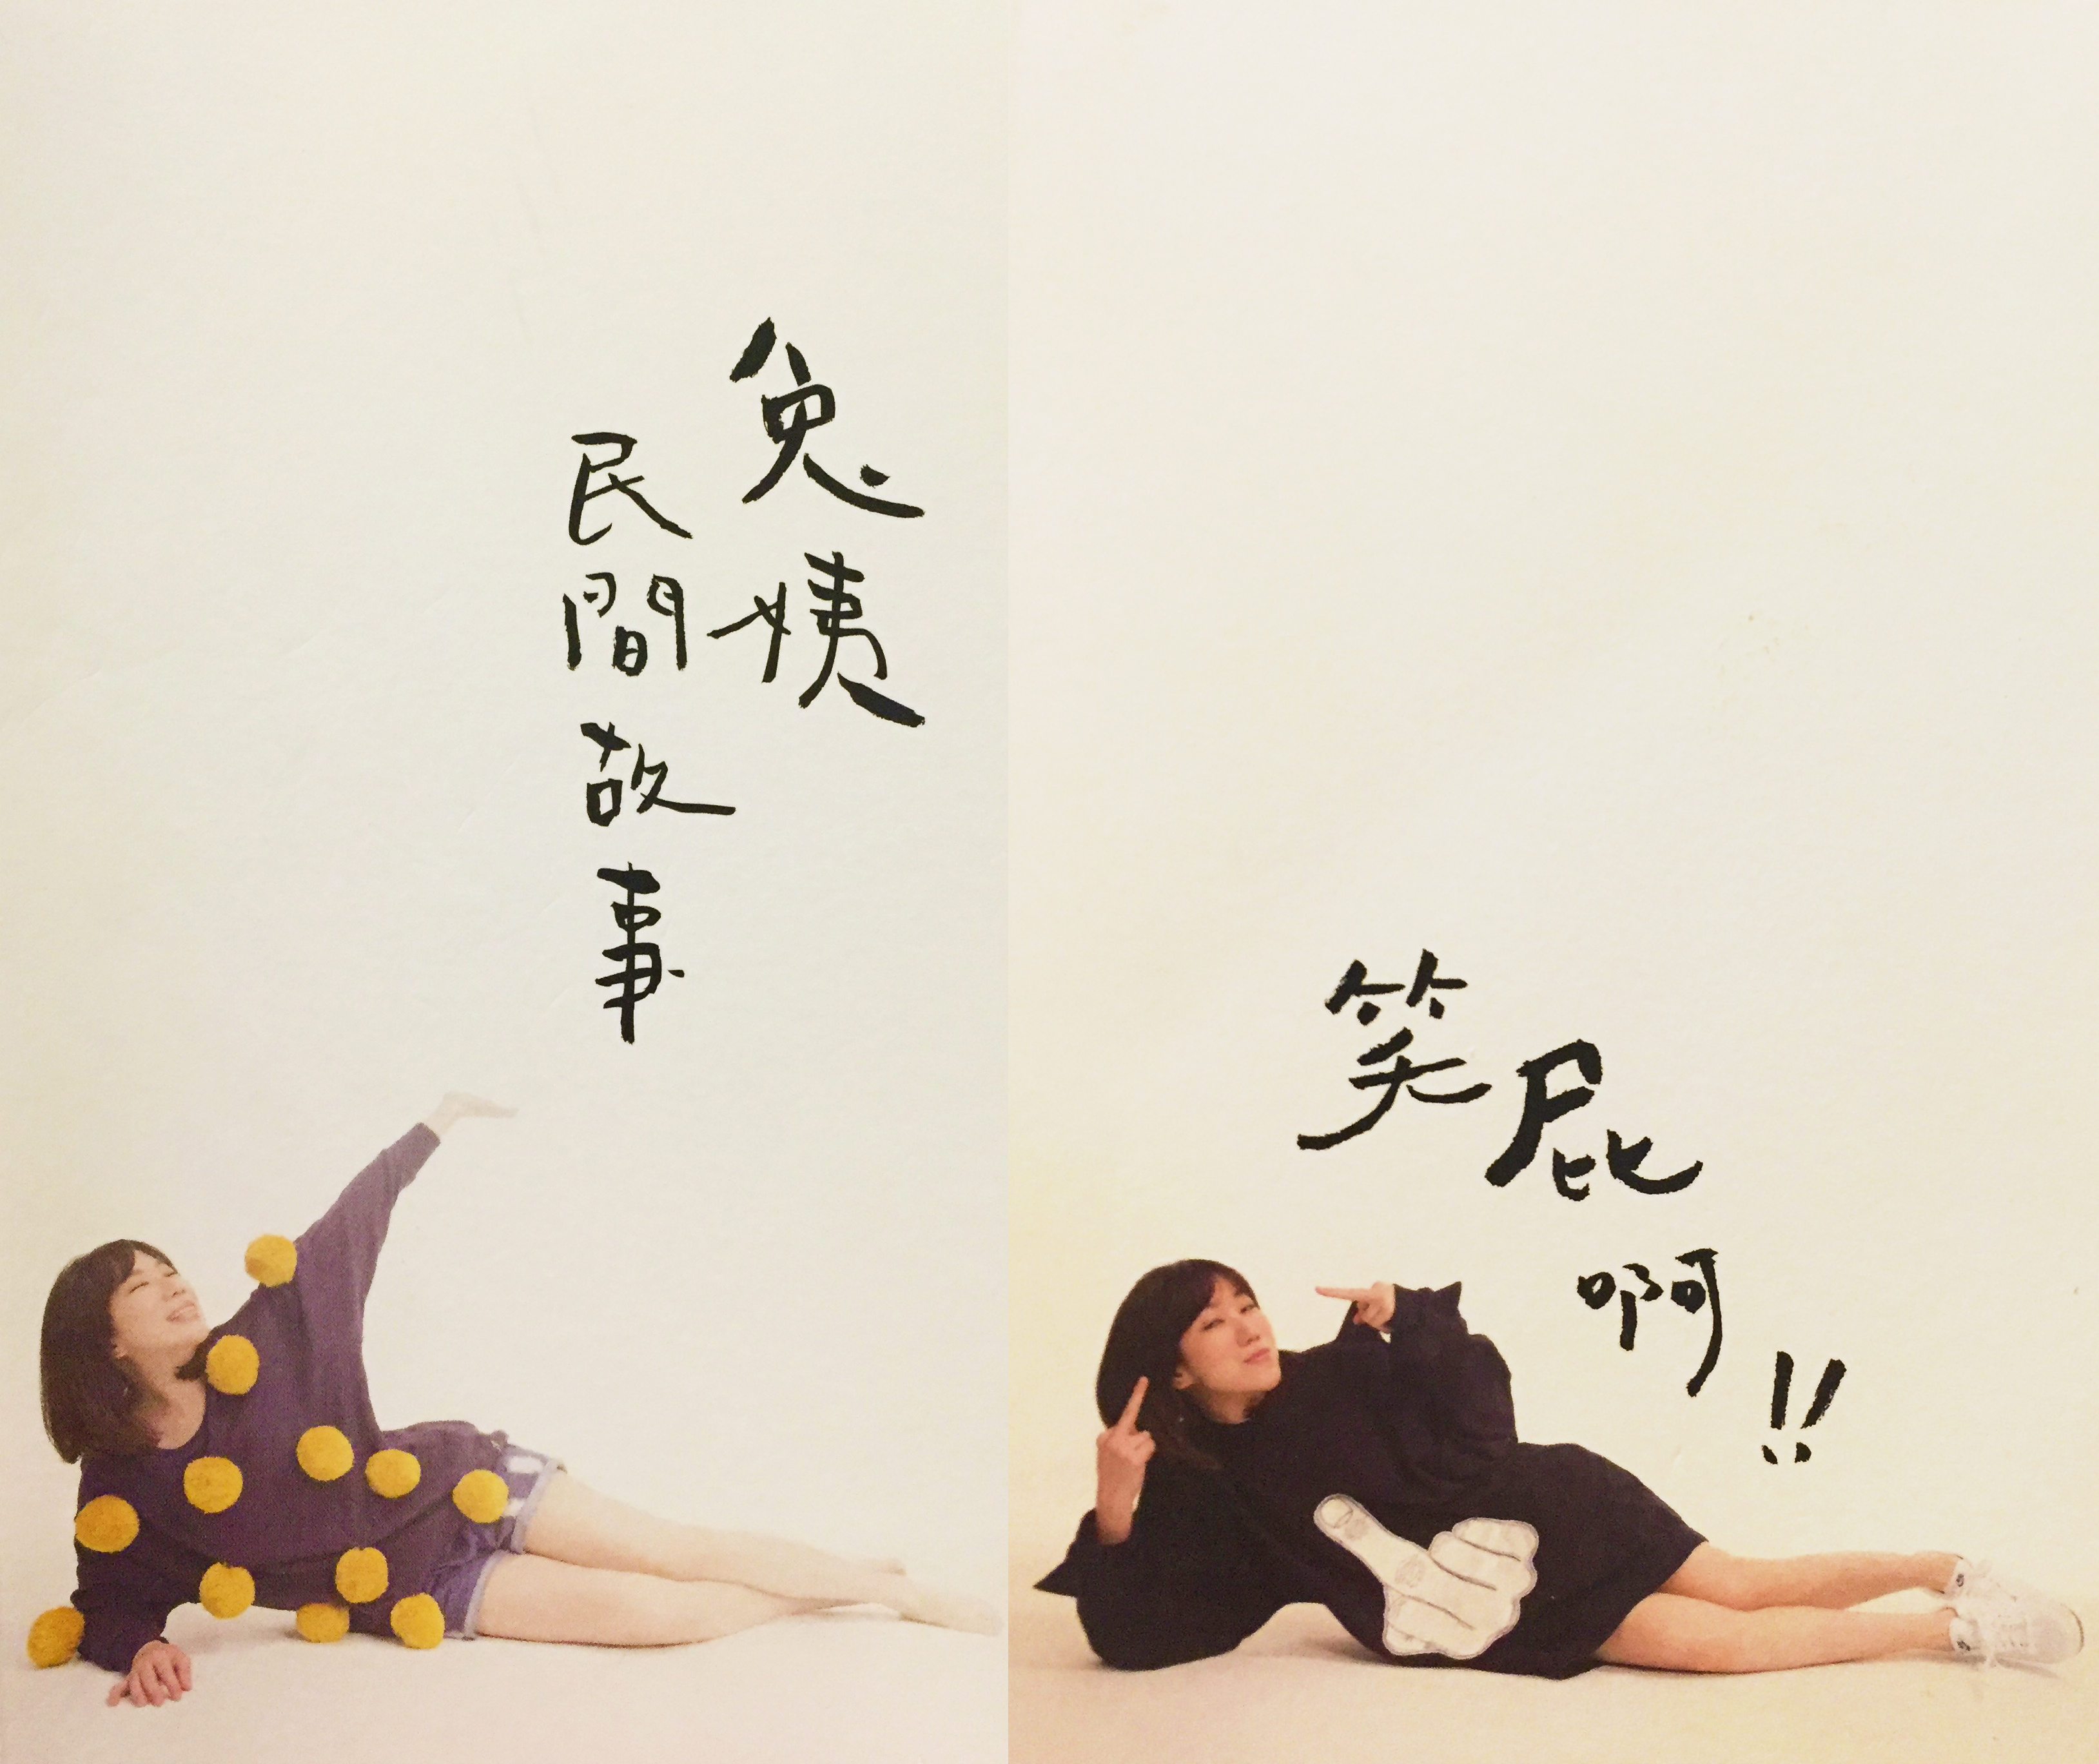 兔姨
民間故事
笑屁啊!!